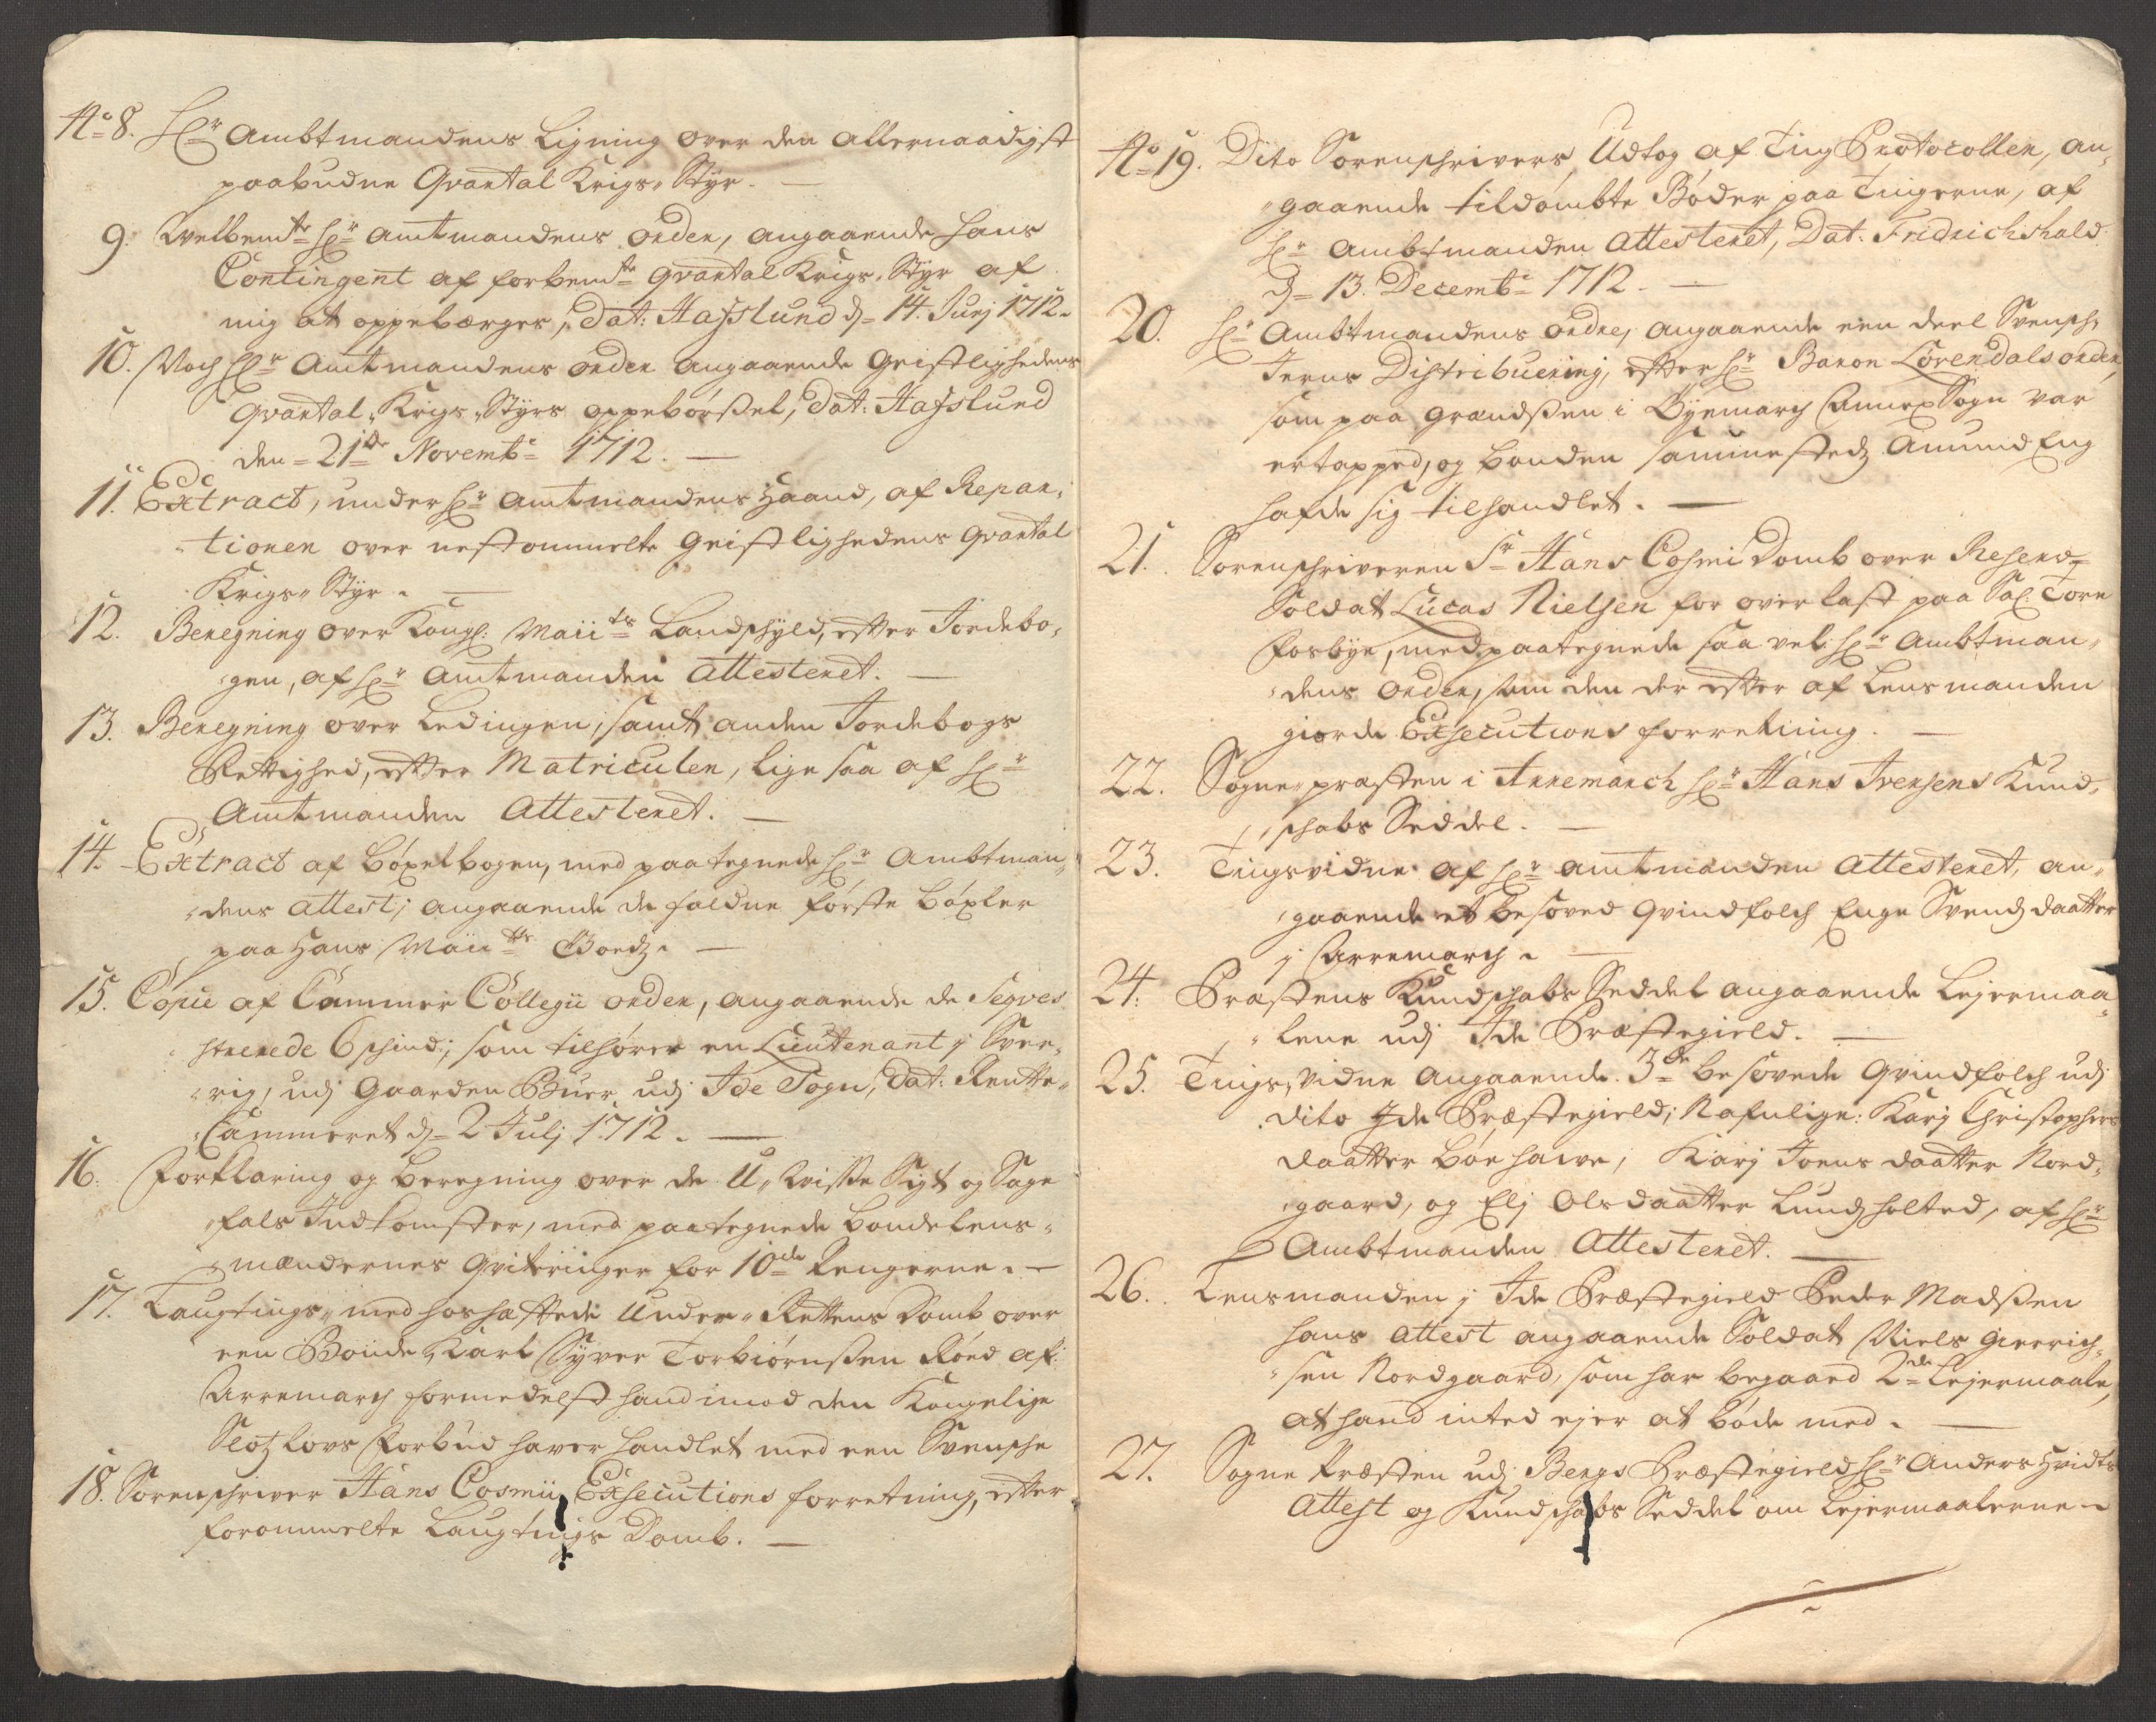 No 8. Hr Ambtmandens Ligning over den allernaadigst
paabudne Qvartal Krigs-Styr.
9. Welbemte Hr Amtmandens Orden, angaaende hans
Contingent af forbemte Qvartal Krigs-Styr af
mig at oppebærges, Dat: Hafslund d. 14. Junj 1712.
10. Noch Hr Amtmandens Orden angaaende Geistlighedens
Qvartal-Krigs-Styrs oppebørßel, Dat: Hafslund
den 21de Novembr 1712.
11. Extract, under Hr Amtmandens Haand, af Repar-
tionen over nestommelte Geistlighedens Qvartal
Krigs-Styr.
12. Beregning over Kongl: Maiits Landschyld, efter Jordebo-
gen, af Hr Amtmanden Attesteret.
13. Beregning over Ledingen, samt anden Jordebogs
Rettighed, efter Matriculen, lige saa af Hr
Amtmanden Attesteret.
14. Extract af Bøxelbogen, med paategnede Hr Ambtman-
dens Attest, angaaende de faldne første Bøxler
paa Hans Maiits Goedz.
15. Copie af Cammer Collegii Orden, angaaende de Seqves
strerede 6 schind:, som tilhører en Lieutenant j Sver-
rig, udj Gaarden Buer udj Ide Sogn, Dat: Rentte-
Cammeret d. 2 Julj 1712.
16. Forklaring og beregning over de U-Wisse Sigt og Sage
fals Indkomster, med paategnede bondelens-
mændernes Qviteringer for 10de Pengerne.
17. Laugtings- med hoshæftede Under-Rettens Domb over
een Bonde Karl Syver Torbiørnßen Røed af
Arremarch formedelst hand imod den Kongelige
Slotzlovs Forbud haver handlet med een Svensche
18. Sorenschriver Hans Cosmii Exsecutions forretning, efter
forommelte Laugtings Domb.
No 19. Dito Sorenschrivers Udtog af Ting Protocollen, an-
gaaende tildømbte Bøder paa Tingerne, af
Hr Ambtmanden Attesteret, Dat: Fridrichshald
d. 13. Decembr 1712.
20. Hr Ambtmandens Ordre, angaaende een deel Svensch-
Jerns Distribuering, efter Hr Baron Lövendals orden,
som paa Grændßen i Øyemarch Annex Sogn var
ertapped, og bonden sammestedz Amund Eng
hafde sig tilhandlet.
21. Sorenschriveren Sr Hans Cosmi Domb over Reserv-
Soldat Lucas Nielsen for overlast paa Sal. Tore
Fosbye, med paategnede saa vel Hr Ambtman-
dens Orden, som den der efter af Lensmanden
giorde Exsecutions forretning.
22. Sogne-præsten i Arremarch Hr Hans Iversens Kund-
schabs Seddel.
23. Tingsvidne af Hr Amtmanden Attesteret, an-
gaaende et besoved Qvindfolch Enge Svendz daatter
j Arremarch.
24. Præstens Kundschabs Seddel angaaende Lejermaa-
lene udj Ide Præstegield.
25. Tings-vidne angaaende 3de besovede Qvindfolch udj
dito Ide Præstegield, Nafnlige: Karj Christophers
daatter Bøe, Karj Joens daatter Nord-
gaard, og Elj Olsdaatter Lundsholted, af Hr
Ambtmanden Attesteret.
26. Lensmanden j Ide Præstegield Peder Madßen
hans Attest angaaende Soldat Niels Gierrich-
sen Nordgaard, som har begaaed 2de Lejermaale,
at hand inted ejer at bøde med.
27. Sogne Præsten udj Bergs Præstegield Hr Anders Hvidts
Attest og Kundschabs Seddel om Lejermaalerne